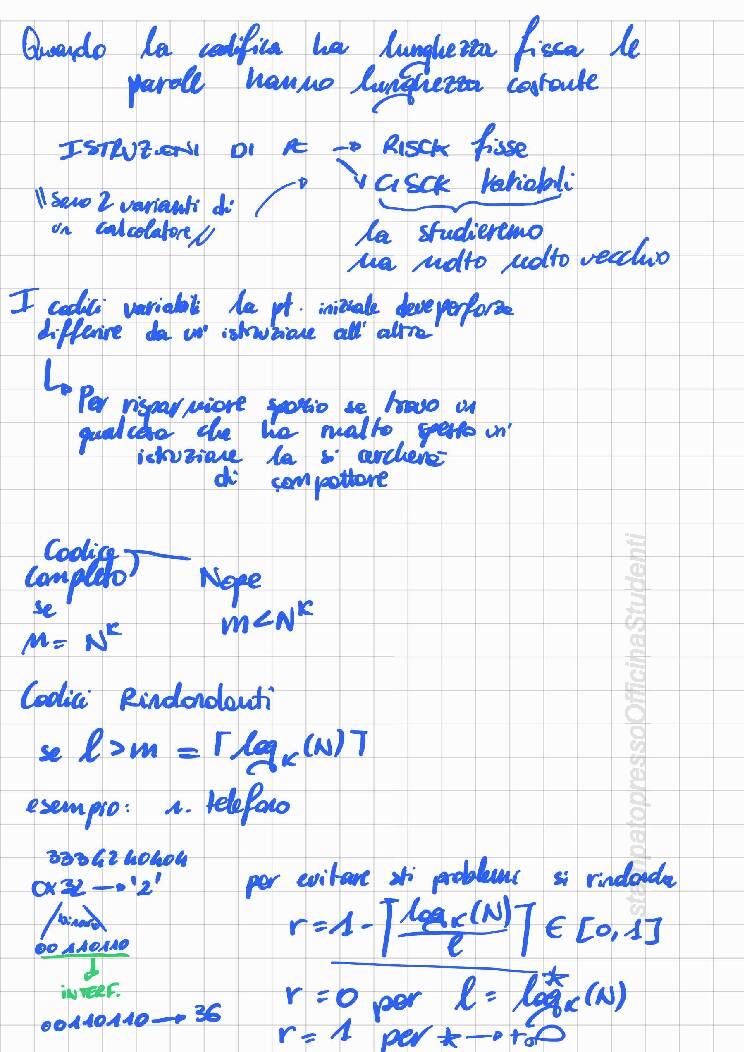 Quando la codifica ha lunghezza fissa le
parole hanno lunghezza costante
ISTRUZIONI DI → RISCK fisse
CISCK Variabili
"sono 2 varianti di
un calcolatore"
la studieremo
ma molto molto vecchio
I codici variabili la pt. iniziale deve perforza
differire da un' istruzione all' altra
Per risparmiare spazio se trovo un
qualcosa che ha molto spesso un'
istruzione la si cercherà
di compattare
Codice
Completo
se
M = N^K
Nope
m < N^K
Codici Rindondanti
se l > m = ⌈log_K(N)⌉
esempio: n. telefono
3334240404
0x32 → '2'
binario
00110110
INTERF.
00110110 → 36
per evitare sti problemi si rindonda
r = 1 - ⌈log_K(N) / l⌉ ∈ [0,1]
r = 0 per l = log_K*(N)
r = 1 per * → +∞
stampatopressoOfficinaStudenti